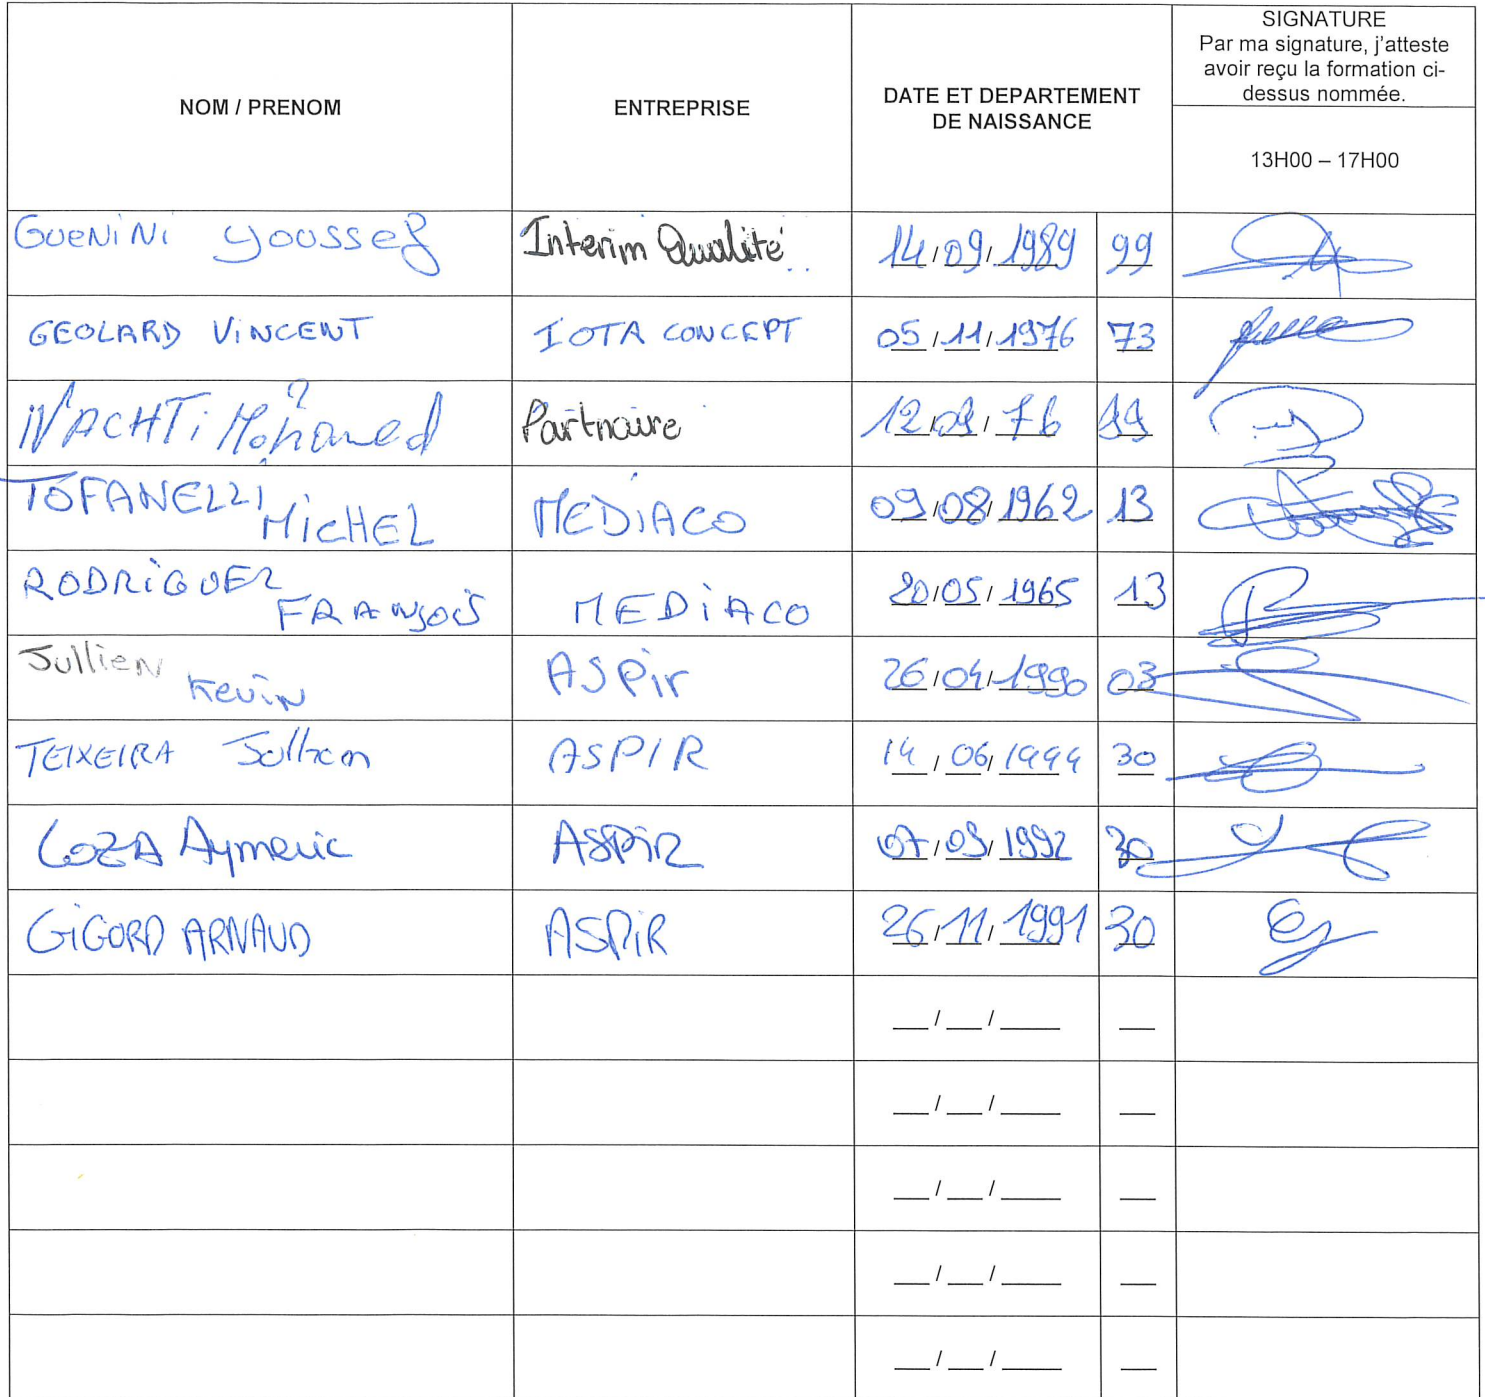 NOM / PRENOM
ENTREPRISE
DATE ET DEPARTEMENT
DE NAISSANCE
SIGNATURE
Par ma signature, j'atteste
avoir reçu la formation ci-
dessus nommée.
13H00 – 17H00
GUENINI Youssef Interim Qualité 14/09/1989 99
GEOLARD VINCENT IOTA CONCEPT 05/11/1976 73
Partnaire 12/09/76 99
TOFANELLI MICHEL MEDIACO 09/08/1962 13
RODRIGUEZ FRANÇOIS MEDIACO 20/05/1965 13
Jullien Kevin ASPir 26/04/1990 03
TEIXEIRA ASPIR 14/06/1999 30
LOZA Aymeric ASPiR 07/09/1992 30
GIGORD ARNAUD ASPiR 26/11/1991 30
__/__/____ __
__/__/____ __
__/__/____ __
__/__/____ __
__/__/____ __